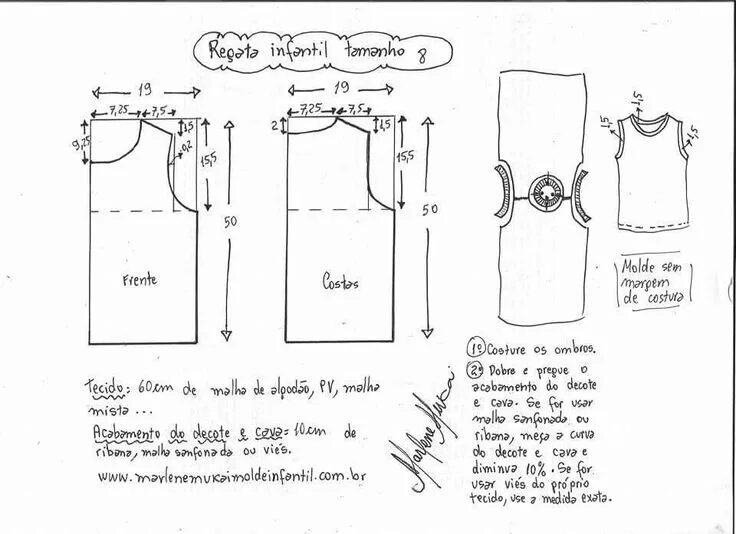 Regata infantil tamanho 8
19
7,25 7,5
1,5
9,25
0,2
15,5
50
Frente
19
7,25 7,5
2
1,5
15,5
50
Costas
1,5
1,5
1,5
Molde sem
margem
de costura
Tecido: 60cm de malha de algodão, PV, malha
mista ...
Acabamento do decote e cava = 10cm de
ribana, malha sanfonada ou viés.
www.marlenemukaimoldeinfantil.com.br
Marlene Mukai
1º Costure os ombros.
2º Dobre e pregue o
acabamento do decote
e cava. Se for usar
malha sanfonada ou
ribana, meça a curva
do decote e cava e
diminua 10%. Se for
usar viés do próprio
tecido, use a medida exata.